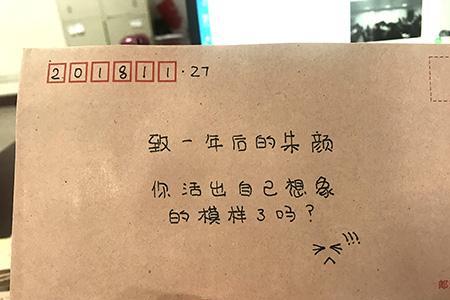 201811.27
致一年后的朱颜
你活出自己想象
的模样了吗?
!!!
邮